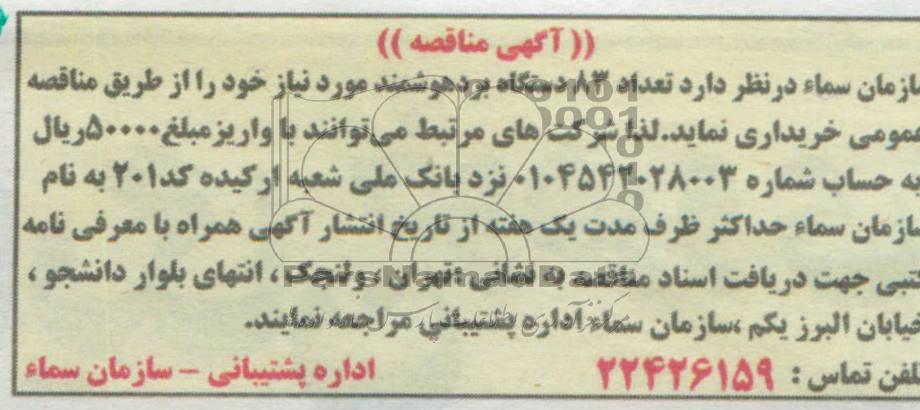 (( آگهی مناقصه ))
ازمان سماء درنظر دارد تعداد ۸۳ دستگاه بردهوشمند مورد نیاز خود را از طریق مناقصه
مومی خریداری نماید.لذا شرکت های مرتبط می توانند با واریز مبلغ ۵۰۰۰۰ریال
به حساب شماره ۰۱۰۴۵۴۲۰۲۸۰۰۳ نزد بانک ملی شعبه ارکیده کد۲۰۱ به نام
سازمان سماء حداکثر ظرف مدت یک هفته از تاریخ انتشار آگهی همراه با معرفی نامه
تبی جهت دریافت اسناد مناقصه به نشانی :تهران ، ولنجک ، انتهای بلوار دانشجو ،
خیابان البرز یکم ،سازمان سماء اداره پشتیبانی مراجعه نمایند.
تلفن تماس : ۲۲۴۲۶۱۵۹
اداره پشتیبانی – سازمان سماء
ParsNamadData